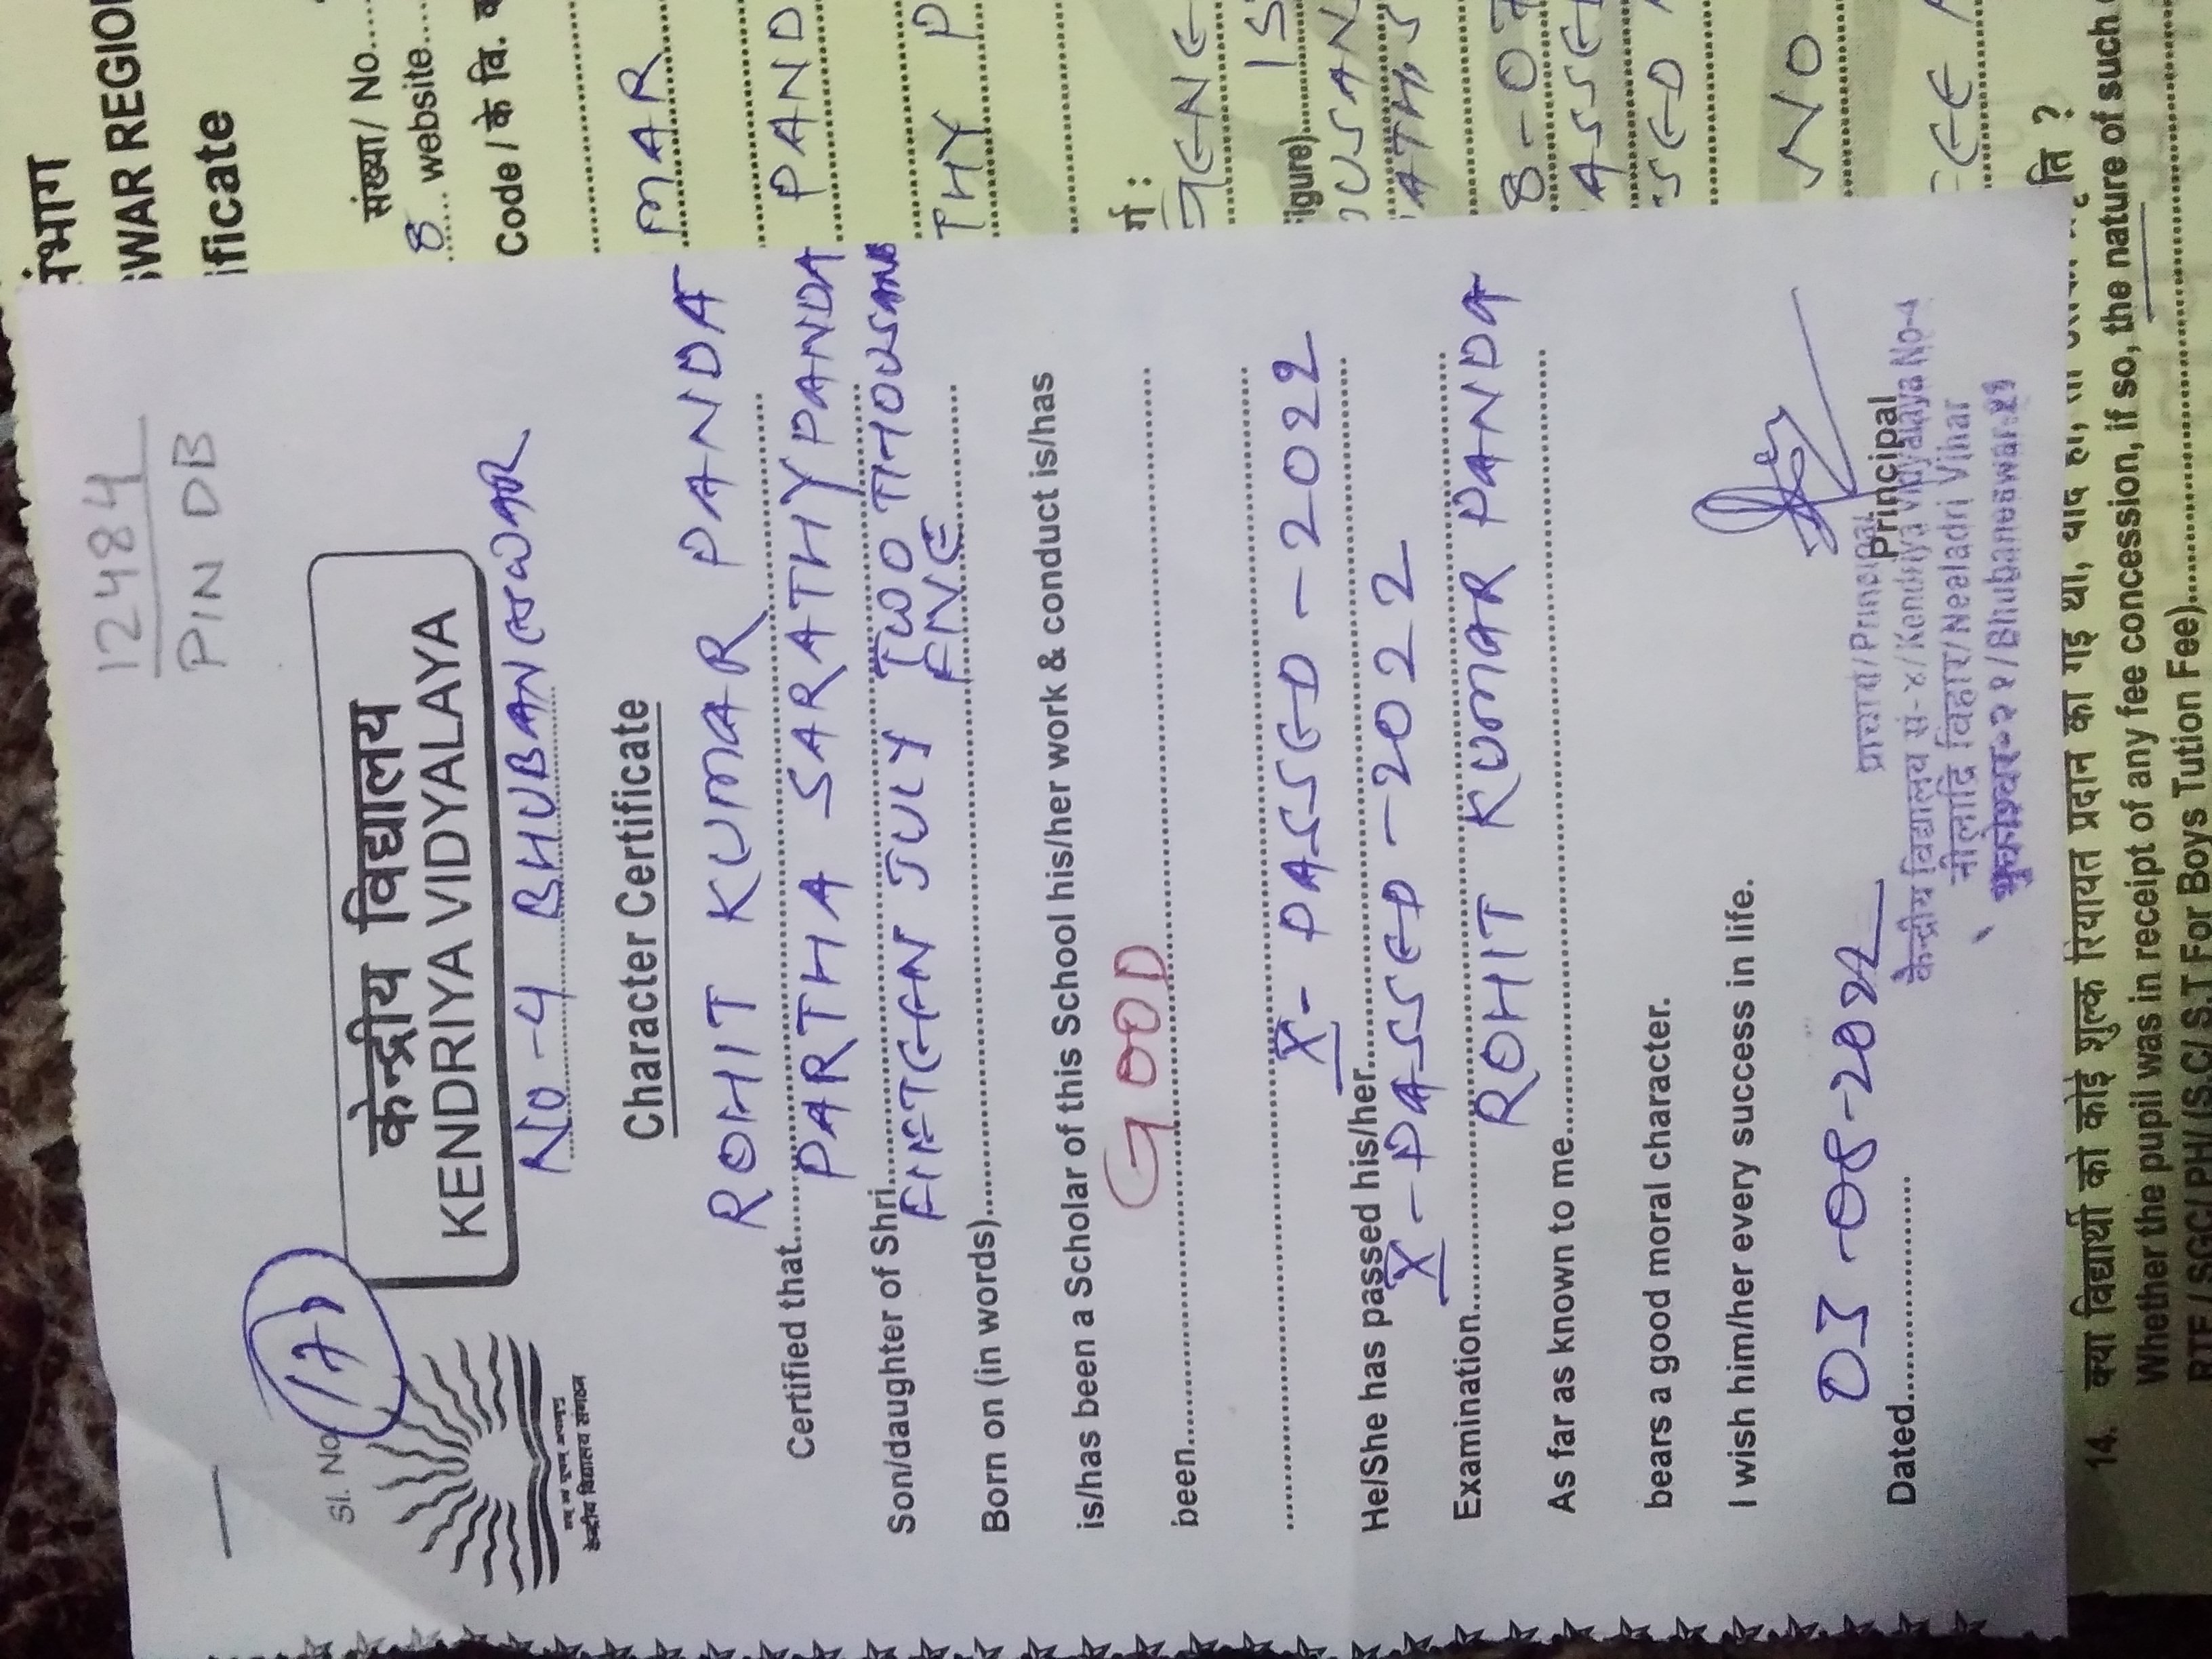 12484
PIN DB
Sl. No
केन्द्रीय विद्यालय
KENDRIYA VIDYALAYA
NO-4 BHUBANESWAR
केन्द्रीय विद्यालय संगठन
Character Certificate
Certified that ROHIT KUMAR PANDA
Son/daughter of Shri PARTHA SARATHY PANDA
Born on (in words) FIFTEEN JULY TWO THOUSAND
is/has been a Scholar of this School his/her work & conduct is/has
been GOOD
X- PASSED - 2022
He/She has passed his/her
Examination X - PASSED - 2022
As far as known to me ROHIT KUMAR PANDA
bears a good moral character.
I wish him/her every success in life.
Dated 05-08-2022
Principal
प्राचार्य/Principal
केन्द्रीय विद्यालय सं-४/Kendriya Vidyalaya No-4
नीलाद्रि विहार/Neeladri Vihar
भुवनेश्वर-२१/Bhubaneswar-21
संभाग
SWAR REGION
ificate
संख्या/ No.
8 website
Code / के वि.
MAR
PAND
THY P
र्ग :
GENE
igure) 15
OUSAN
ATH, S
8-07
ASSE
SED
NO
EE
14. क्या विद्यार्थी को कोई शुल्क रियायत प्रदान की गई थी, यदि हाँ, तो
ृति ?
Whether the pupil was in receipt of any fee concession, if so, the nature of such
RTE / SGC/ PH/ (S.C/ S.T For Boys Tution Fee)